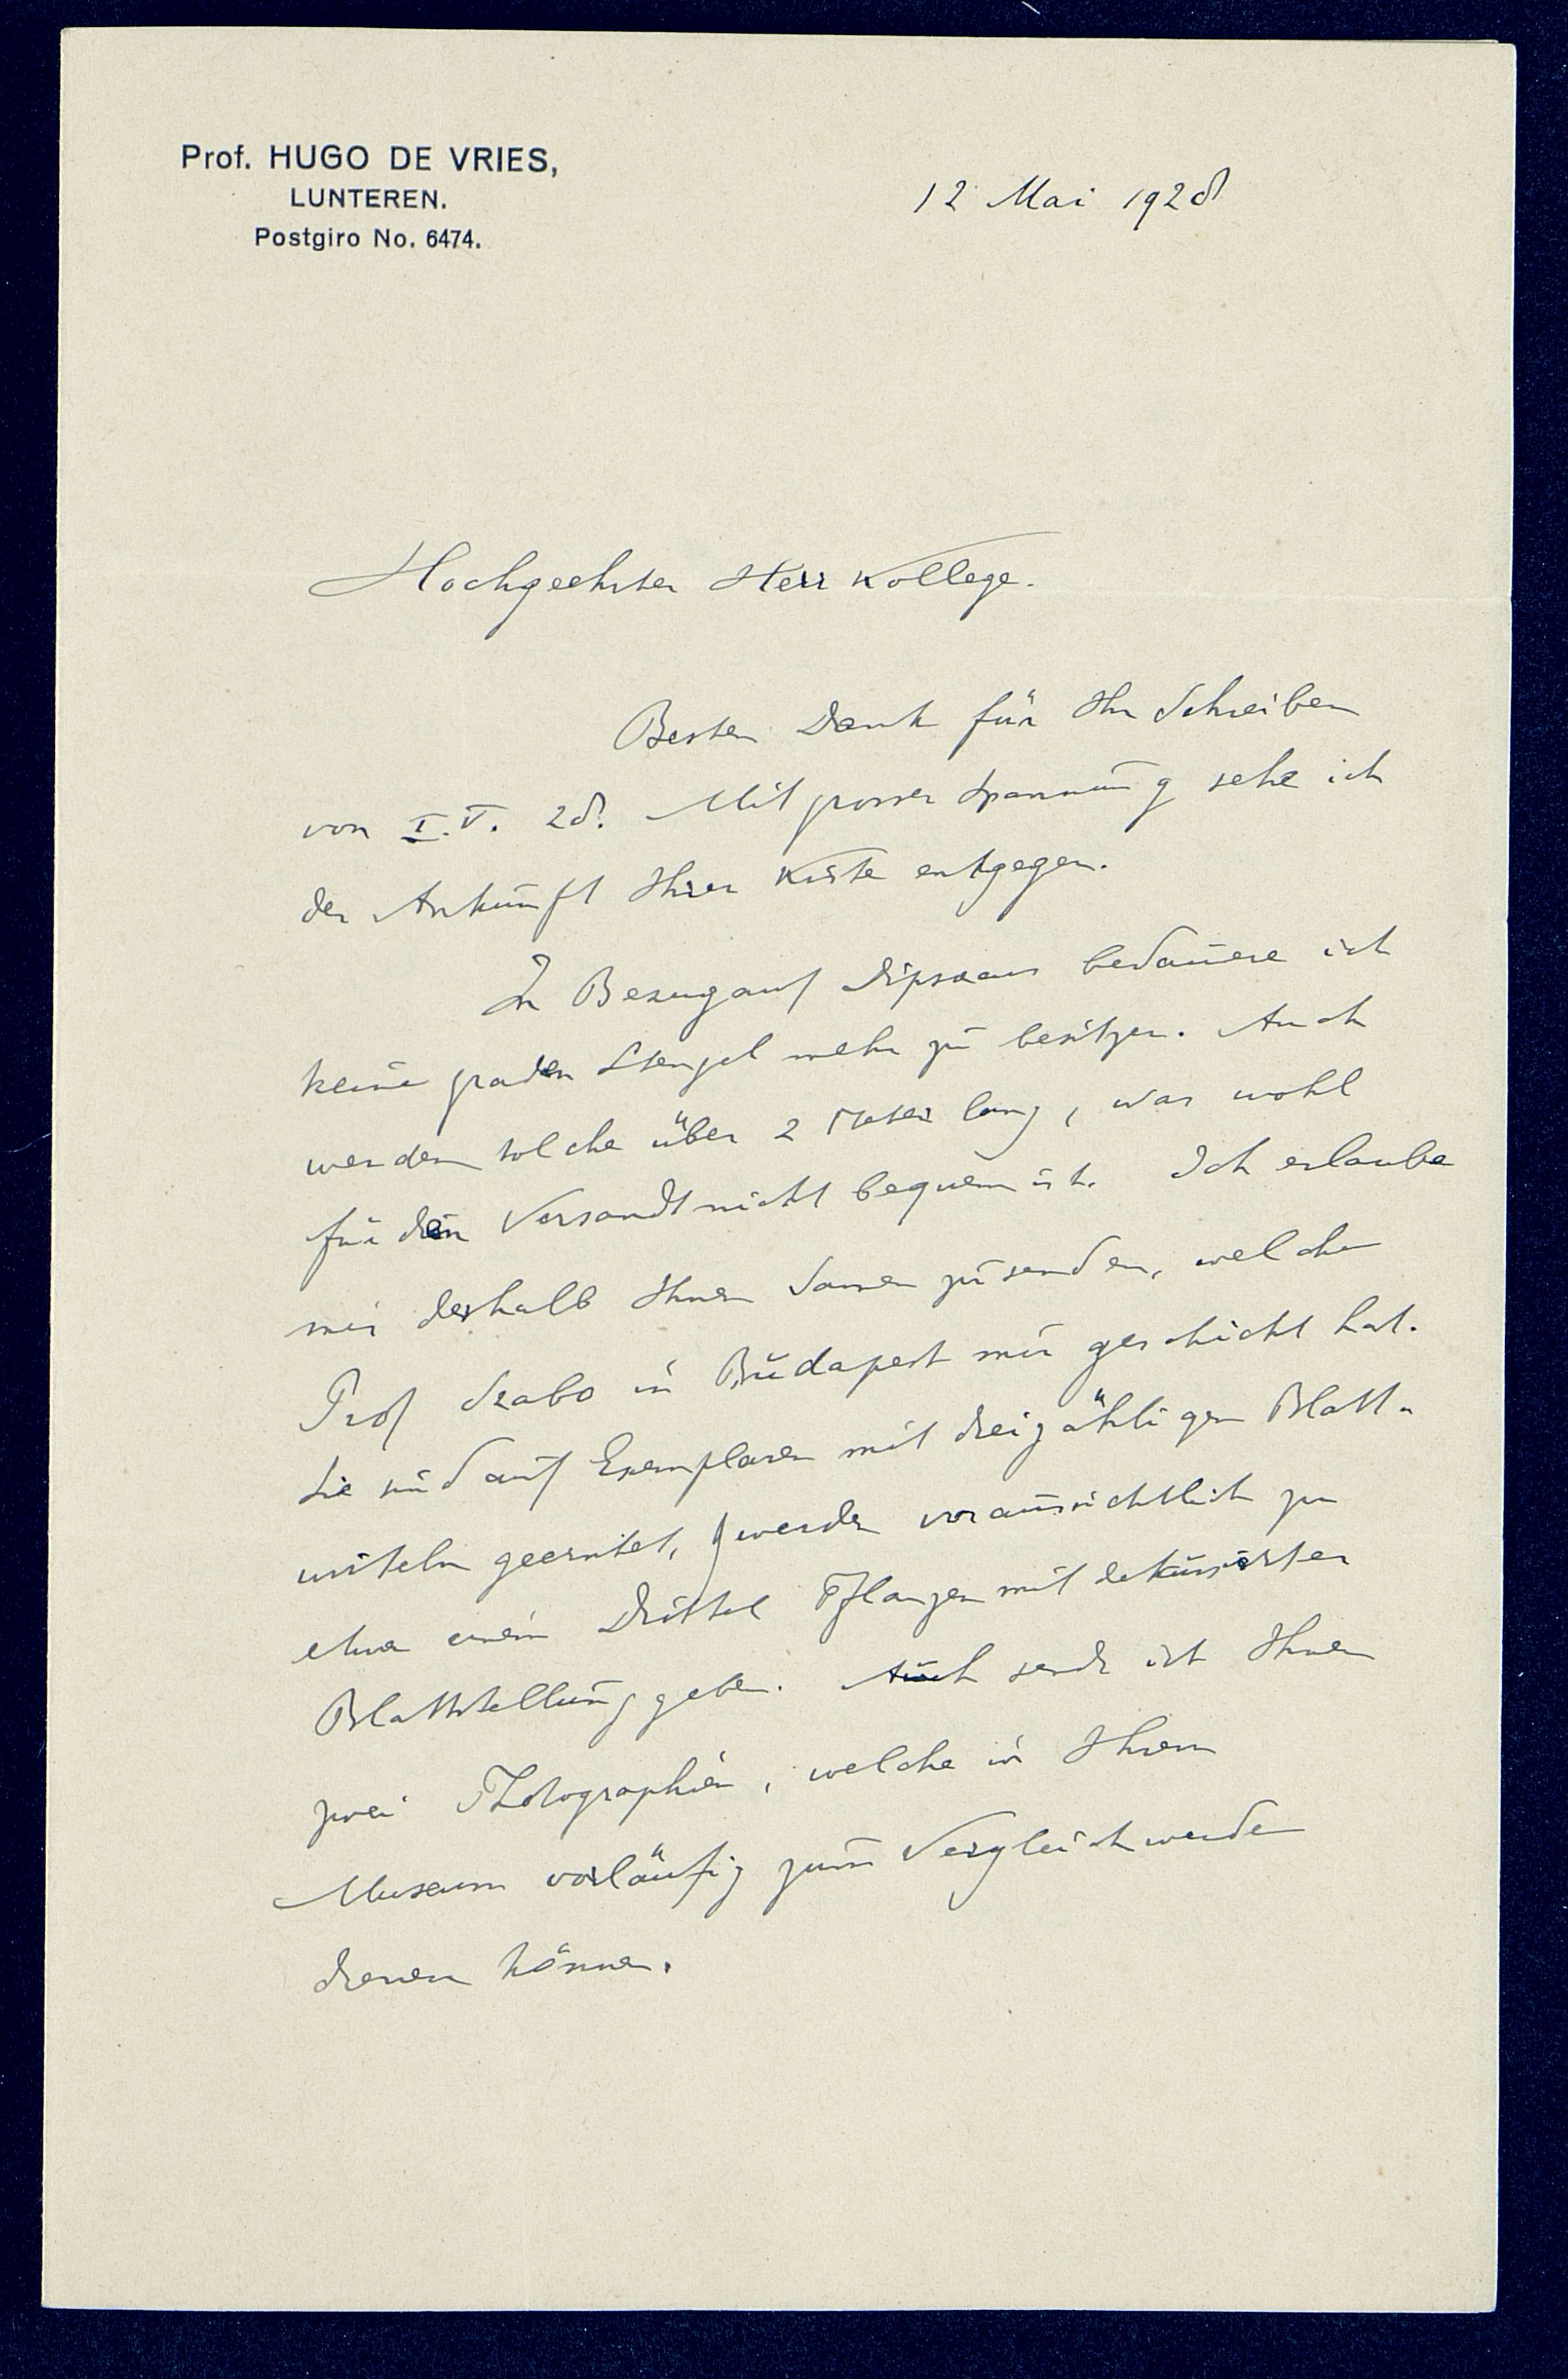 Prof. HUGO DE VRIES,
LUNTEREN.
Postgiro No. 6474.
12 Mai 1928
Hochgeehrter Herr Kollege.
Besten Dank für Ihr Schreiben
von I.V. 28. Mit grosser Spannung sehe ich
der Ankunft Ihrer Kiste entgegen.
In Bezug auf Dipsacus bedauere ich
keine graden Stengel mehr zu besitzen. Auch
werden solche über 2 Meter lang, was wohl
für den Versandt nicht bequem ist. Ich erlaube
mir deshalb Ihnen Samen zu senden, welche
Prof Szabo in Budapest mir geschickt hat.
Sie sind auf Exemplaren mit dreizähligen Blatt-
wirteln geerntet, & werden voraussichtlich zu
etwa einem Drittel Pflanzen mit dekussirter
Blattstellung geben. Auch sende ich Ihnen
zwei Photographien, welche in Ihrem
Museum vorläufig zum Vergleich werden
dienen können.